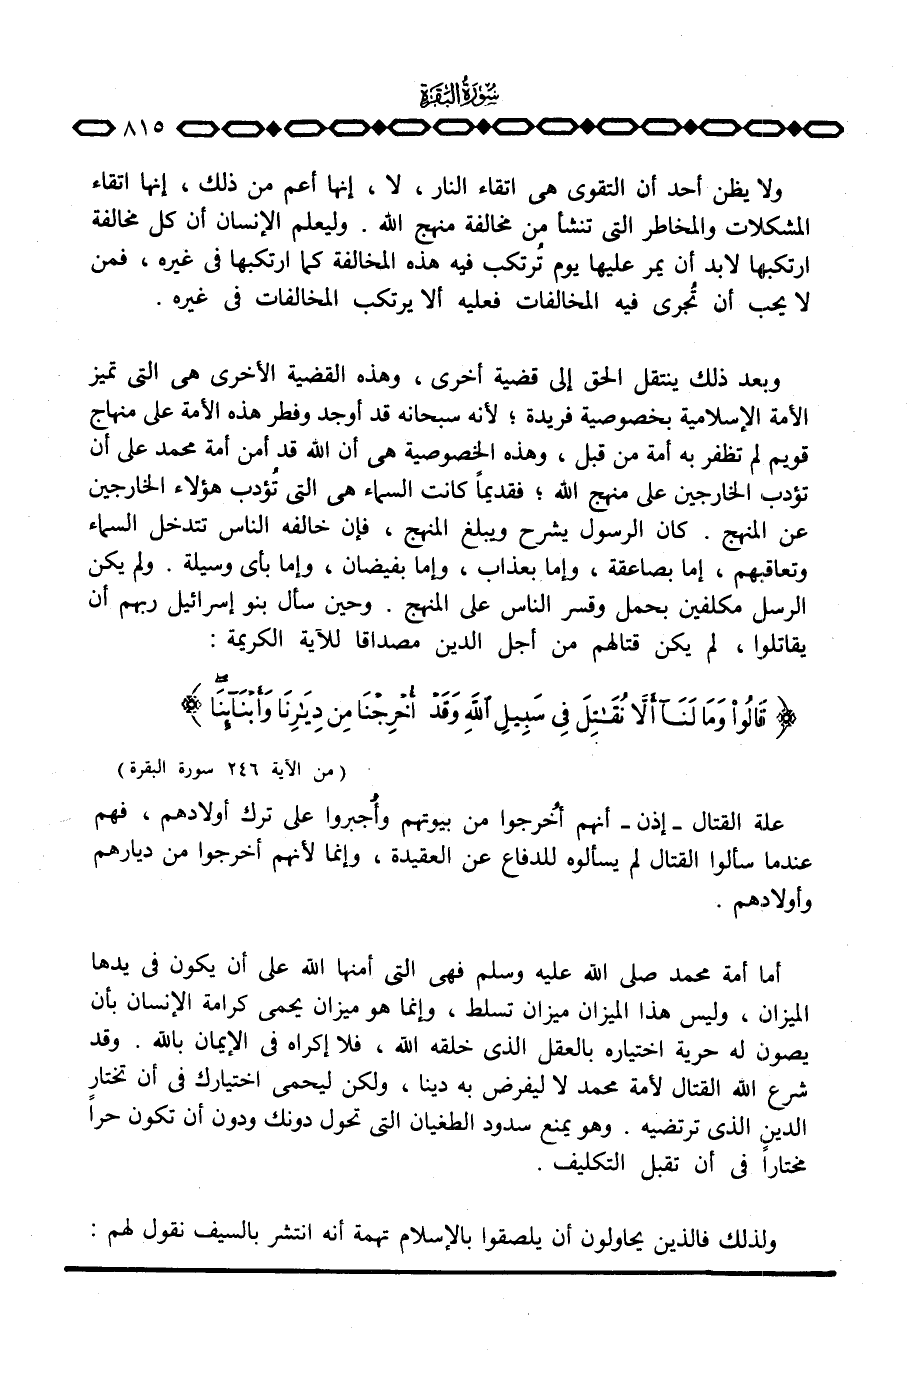 سُورَةُ البَقَرَة
٨١٥
ولا يظن أحد أن التقوى هى اتقاء النار ، لا ، إنها أعم من ذلك ، إنها اتقاء
المشكلات والمخاطر التى تنشأ من مخالفة منهج الله . وليعلم الإنسان أن كل مخالفة
ارتكبها لابد أن يمر عليها يوم تُرتكب فيه هذه المخالفة كما ارتكبها فى غيره ، فمن
لا يحب أن تُجرى فيه المخالفات فعليه ألا يرتكب المخالفات فى غيره .
وبعد ذلك ينتقل الحق إلى قضية أخرى ، وهذه القضية الأخرى هى التى تميز
الأمة الإسلامية بخصوصية فريدة ؛ لأنه سبحانه قد أوجد وفطر هذه الأمة على منهاج
قويم لم تظفر به أمة من قبل ، وهذه الخصوصية هى أن الله قد أمن أمة محمد على أن
تؤدب الخارجين على منهج الله ؛ فقديماً كانت السماء هى التى تُؤدب هؤلاء الخارجين
عن المنهج . كان الرسول يشرح ويبلغ المنهج ، فإن خالفه الناس تتدخل السماء
وتعاقبهم ، إما بصاعقة ، وإما بعذاب ، وإما بفيضان ، وإما بأى وسيلة . ولم يكن
الرسل مكلفين بحمل وقسر الناس على المنهج . وحين سأل بنو إسرائيل ربهم أن
يقاتلوا ، لم يكن قتالهم من أجل الدين مصداقا للآية الكريمة :
﴿ قَالُواْ وَمَا لَنَآ أَلَّا نُقَٰتِلَ فِى سَبِيلِ ٱللَّهِ وَقَدْ أُخْرِجْنَا مِن دِيَٰرِنَا وَأَبْنَآئِنَا ۖ ﴾
( من الآية ٢٤٦ سورة البقرة )
علة القتال ـ إذن ـ أنهم أُخرجوا من بيوتهم وأُجبروا على ترك أولادهم ، فهم
عندما سألوا القتال لم يسألوه للدفاع عن العقيدة ، وإنما لأنهم أخرجوا من ديارهم
وأولادهم .
أما أمة محمد صلى الله عليه وسلم فهى التى أمنها الله على أن يكون فى يدها
الميزان ، وليس هذا الميزان ميزان تسلط ، وإنما هو ميزان يحمى كرامة الإنسان بأن
يصون له حرية اختياره بالعقل الذى خلقه الله ، فلا إكراه فى الإيمان بالله . وقد
شرع الله القتال لأمة محمد لا ليفرض به دينا ، ولكن ليحمى اختيارك فى أن تختار
الدين الذى ترتضيه . وهو يمنع سدود الطغيان التى تحول دونك ودون أن تكون حراً
مختاراً فى أن تقبل التكليف .
ولذلك فالذين يحاولون أن يلصقوا بالإسلام تهمة أنه انتشر بالسيف نقول لهم :